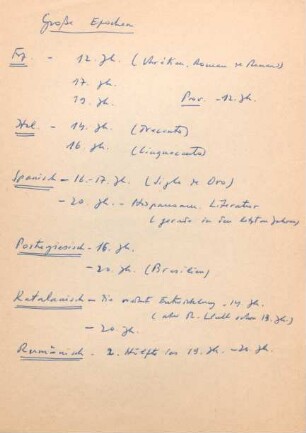 Große Epochen
Frz. - 12. Jh. (Chrétien, Roman de Renard)
17. Jh.
19. Jh. Prov. - 12. Jh.
Ital. - 14. Jh. (Trecento)
16. Jh. (Cinquecento)
Spanisch - 16.-17. Jh. (Siglo de Oro)
- 20. Jh. - Hispanoam. Literatur
(gerade in den letzten Jahren)
Portugiesisch - 16. Jh.
- 20. Jh. (Brasilien)
Katalanisch - Die Entwicklung - 14. Jh.
(aber R. Llull schon 13. Jh.)
- 20. Jh.
Rumänisch - 2. Hälfte des 19. Jh. - 20. Jh.